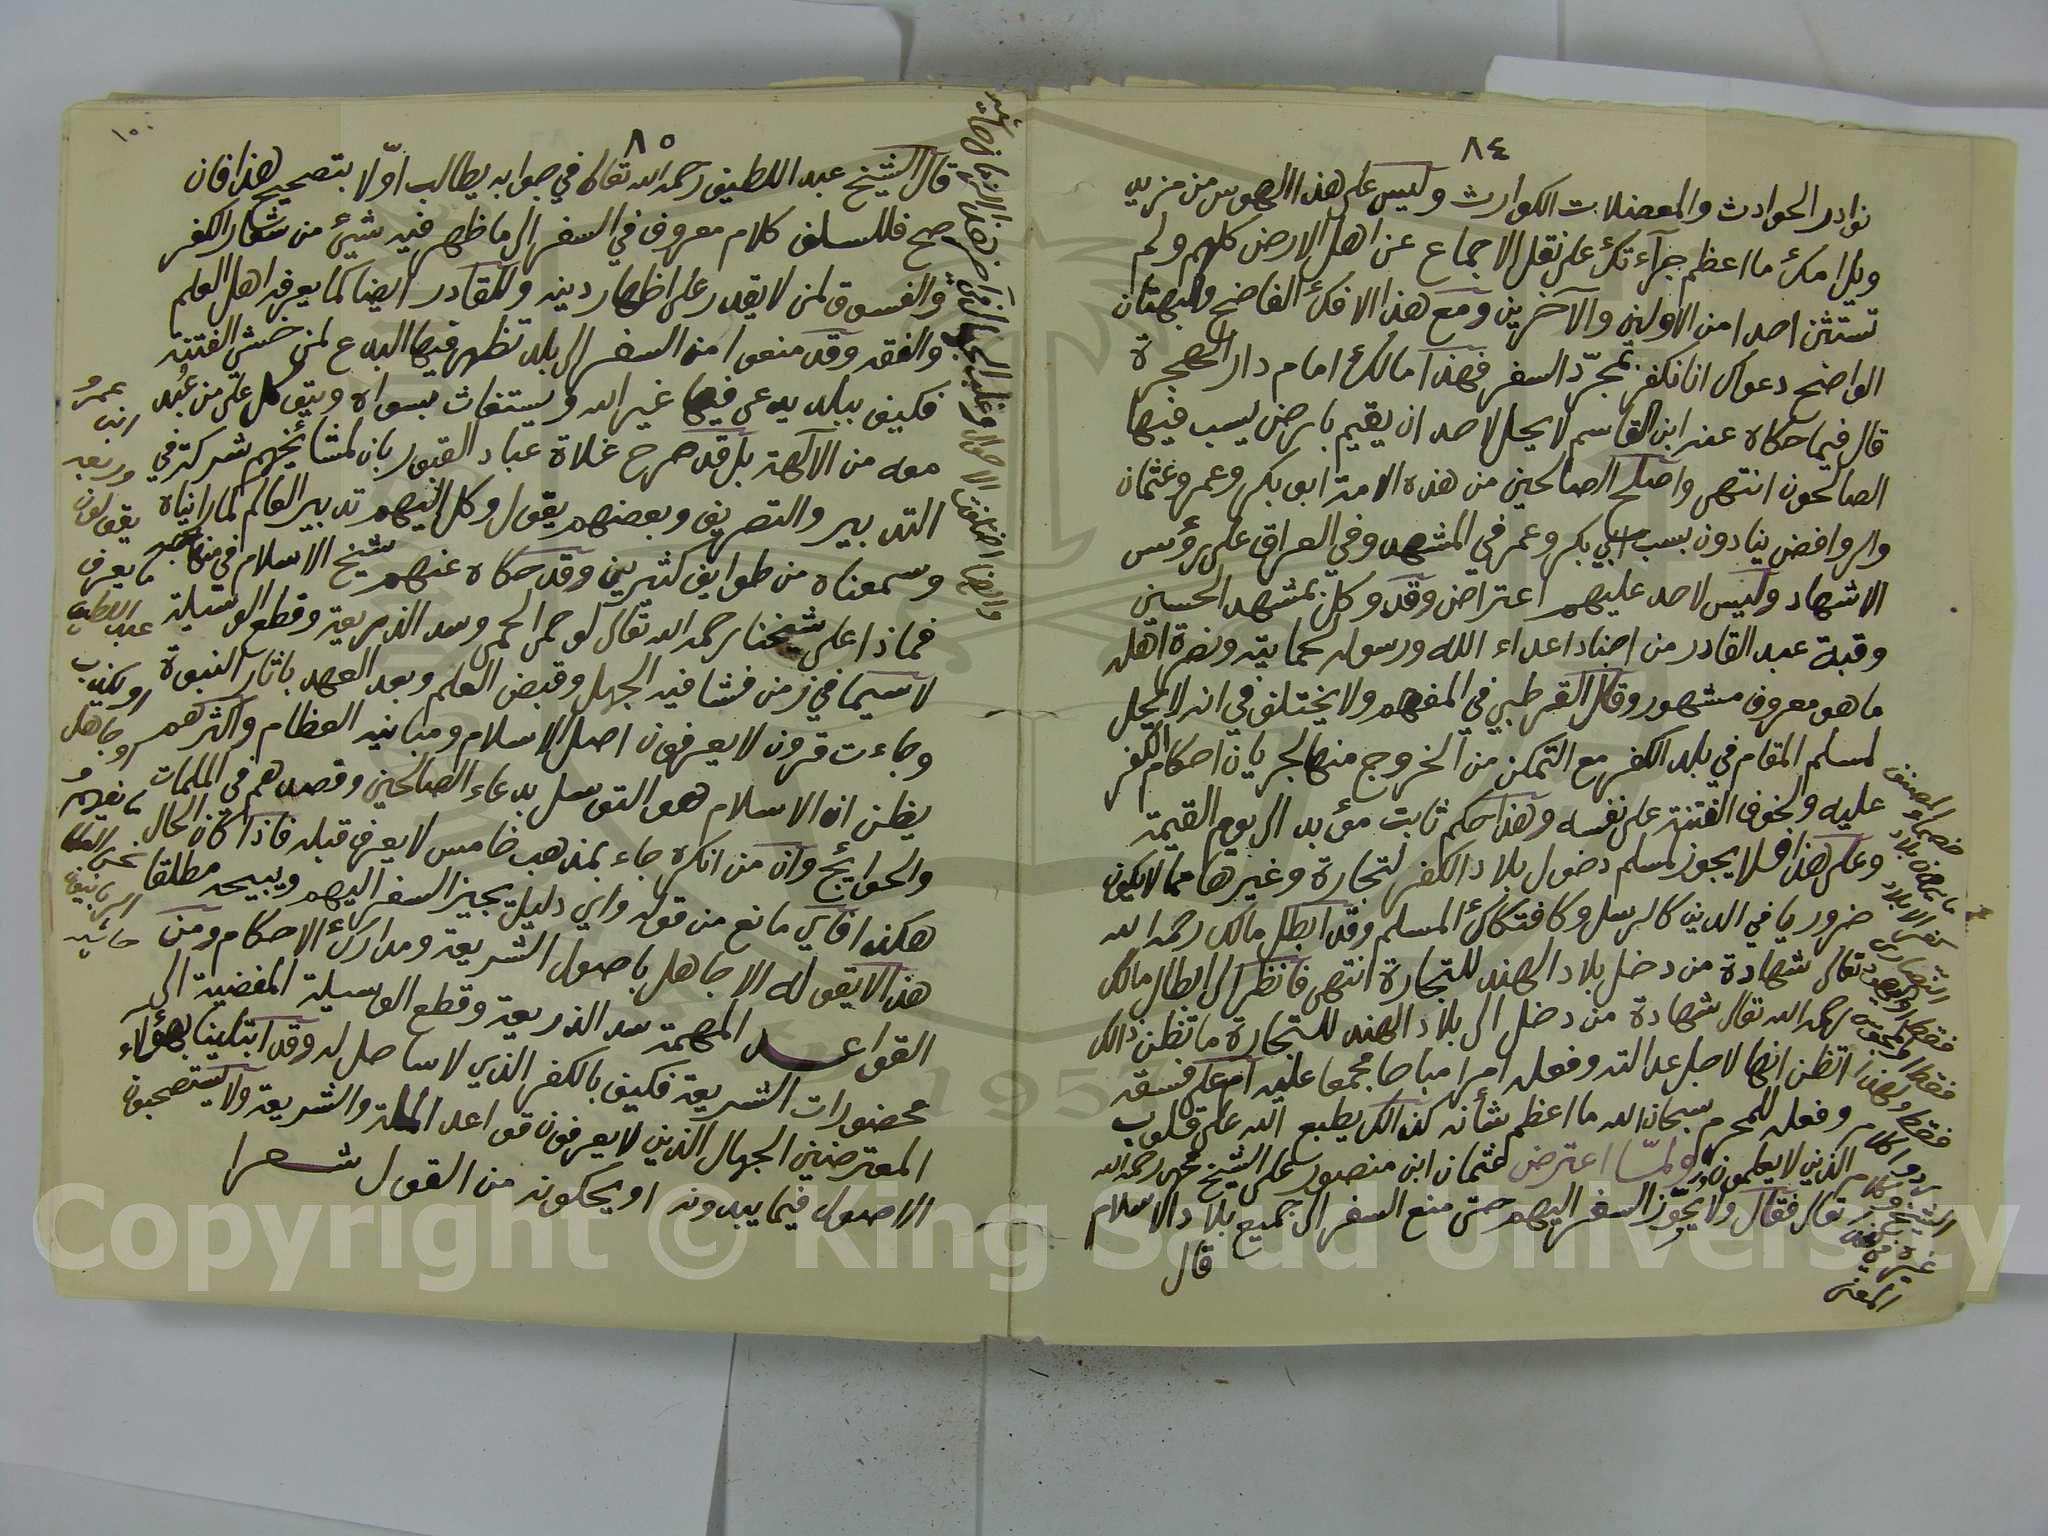 ٨٤
نوادر الحوادث والمعضلات الكوارث وليس على هذا الهوس من مزيد
ويل امك ما اعظم جرآءتك على نقل الاجماع عن اهل الارض كلهم ولم
تستثن احدا من الاولين والآخرين ومع هذا الافك الفاضح والبهتان
الواضح دعواك انا نكفر بمجرّد السفر فهذا مالك امام دار الهجرة
قال فيما حكاه عنه ابن القاسم لا يحل لاحد ان يقيم بارض يسب فيها
الصالحون انتهى واصلح الصالحين من هذه الامة ابو بكر وعمر وعثمان
والروافض ينادون بسب ابي بكر وعمر في المشهد وفي العراق على رؤس
الاشهاد وليس لاحد عليهم اعتراض وقد وكّل بمشهد الحسين
وقبة عبد القادر من اجناد اعداء الله ورسوله لحمايته ونصرة اهله
ما هو معروف مشهور وقال القرطبي في المفهم ولا يختلف في انه لا يحل
لمسلم المقام في بلد الكفر مع التمكن من الخروج منها لجريان احكام الكفر
عليه ولخوف الفتنة على نفسه وهذا حكم ثابت مؤبد الى يوم القيمة
وعلى هذا فلا يجوز لمسلم دخول بلاد الكفر لتجارة وغيرها مما لا يكون
ضروريا في الدين كالرسل وكافتكاك المسلم وقد ابطل مالك رحمه الله
تعالى شهادة من دخل بلاد الهند للتجارة انتهى فانظر الى ابطال مالك
رحمه الله تعالى شهادة من دخل الى بلاد الهند للتجارة ما تظن ذالك
اتظن انها لاجل عدالته وفعله امرا مباحا مجمعا عليه ام على فسقه
وفعله للمحرم سبحان الله ما اعظم شأنه كذالك يطبع الله على قلوب
الذين لا يعلمون ولمّا اعترض عثمان ابن منصور على الشيخ محمد رحمه الله
تعالى فقال ولا يجوّز السفر اليهم حتى منع السفر الى جميع بلاد الاسلام
قال
٨٥
١٠٠
قال الشيخ عبد اللطيف رحمه الله تعالى في جوابه يطالب اوّلا بتصحيح هذا فان
صح فللسلف كلام معروف في السفر الى ما ظهر فيه شيئ من شعار الكفر
والفسوق لمن لا يقدر على اظهار دينه وللقادر ايضا كما يعرفه اهل العلم
والفقه وقد منعوا من السفر الى بلد تظهر فيها البدع لمن خشي الفتنة
فكيف ببلد يدعى فيها غير الله ويستغاث بسواه ويتوكل على من عُبد
معه من الآلهة بل قد صرح غلاة عباد القبور بان لمشائخهم شركة في
التدبير والتصريف وبعضهم يقول وكل اليهم تدبير العالم لما رايناه
وسمعناه من طوايف كثيرين وقد حكاه عنهم شيخ الاسلام في منهاجه
فماذا على شيخنا رحمه الله تعالى لو حمى الحمى وسد الذريعة وقطع الوسيلة
لا سيما في زمن فشا فيه الجهل وقبض العلم وبعد العهد باثار النبوة
وجاءت قرون لا يعرفون اصل الاسلام ومبانيه العظام واكثرهم
يظن ان الاسلام هو التوسل بدعاء الصالحين وقصدهم في الملمات
والحوايج وان من انكره جاء بمذهب خامس لا يعرف قبله فاذا كان الحال
هكذا فاي مانع من قوله واي دليل يجيز السفر اليهم ويبيحه مطلقا
هذا لا يقوله الا جاهل باصول الشريعة ومدارك الاحكام ومن
القواعد المهمة سد الذريعة وقطع الوسيلة المفضية الى
محضورات الشريعة فكيف بالكفر الذي لا ساحل له وقد ابتلينا بهؤلاء
المعترضين الجهال الذين لا يعرفون قواعد الملة والشريعة ولا يستصحبون
الاصول فيما يبدونه او يحكونه من القول شعرا
Copyright © King Saud University
1957